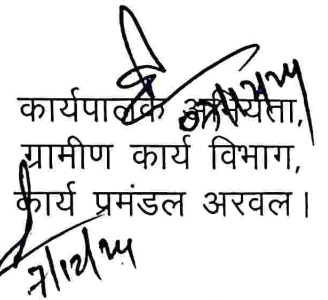 कार्यपालक अभियंता,
ग्रामीण कार्य विभाग,
कार्य प्रमंडल अरवल।
7/12/24